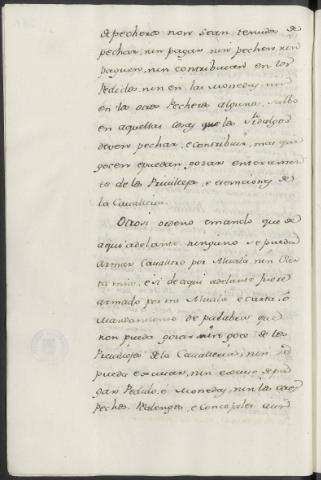 de pecheros non sean tenudos de
pechar, nin pagar, nin pechen, nin
paguen, nin contribuian en los
Pedidos, nin en las Monedas, nin
en los otros Pechera alguna, salbo
en aquellas cosas que los Fidalgos
deven pechar, e contribuir, mas que
gocen e puedan gozar enteramen
te de los Privilegios, e exenciones de
la Cavalleria.
Otrosi ordeno e mando que de
aqui adelante ninguno se pueda
armar Cavallero por Alvalá nin Car
ta mia, e si de aqui adelante fuere
armado por mi Alvalá e carta, ó
Mandamiento de palabra que
non pueda gozar nin goce de los
Privilegios de la Cavalleria, nin se
pueda excusar, nin escuse de pa
gar Pedido, é Monedas, nin los otros
Pechos Realengos, e Concejales aun